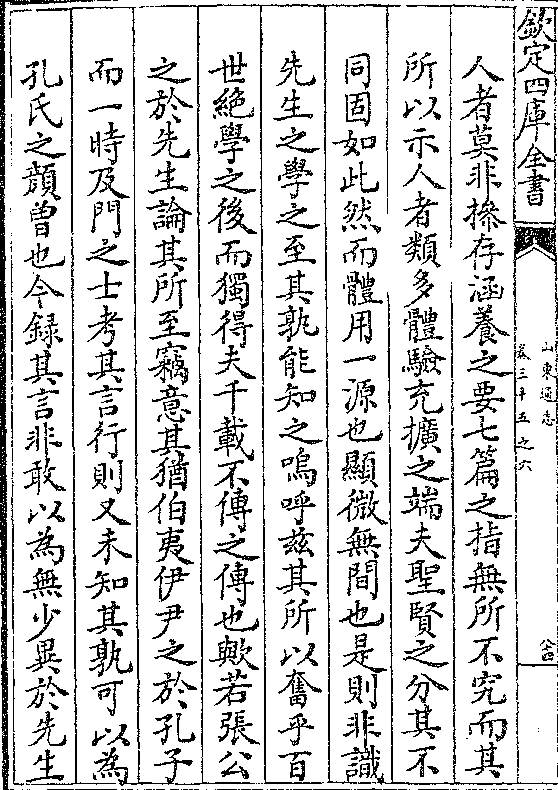 欽定四庫全書
山東通志
卷三十五之六
人者莫非操存涵養之要七篇之指無所不究而其
所以示人者類多體驗充擴之端夫聖賢之分其不
同固如此然而體用一源也顯微無間也是則非識
先生之學之至其孰能知之嗚呼兹其所以奮乎百
世絶學之後而獨得夫千載不傳之傳也歟若張公
之於先生論其所至竊意其猶伯夷伊尹之於孔子
而一時及門之士考其言行則又未知其孰可以為
孔氏之顔曽也今録其言非敢以為無少異於先生